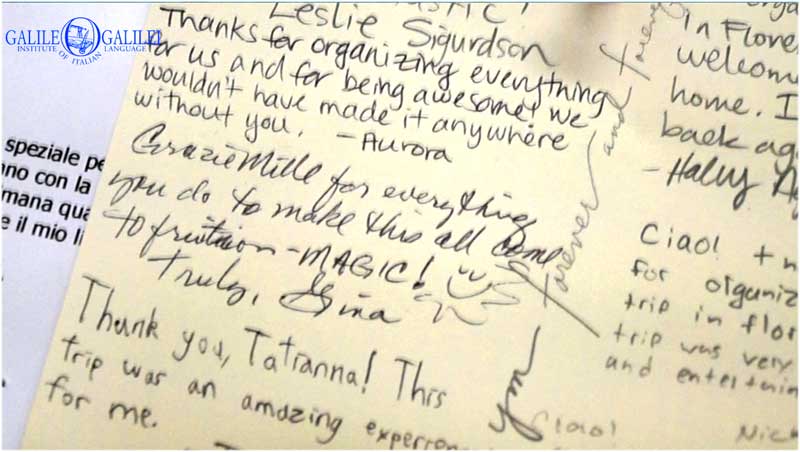 GALILEO GALILEI
INSTITUTE OF ITALIAN LANGUAGE
speziale pe
no con la
mana qua
e il mio li
Leslie Sigurdson
Thanks for organizing everything
for us and for being awesome! We
wouldn't have made it anywhere
without you. - Aurora
Grazie Mille for everything
you do to make this all come
to fruition - MAGIC!
Truly, Gina
Thank you, Tatianna! This
trip was an amazing experien
for me.
forever and forever
in Flore
welcome
home. I
back aga
- Haley
Ciao!
for organiz
trip in flor
trip was very
and entertain
Ciao!
Nic